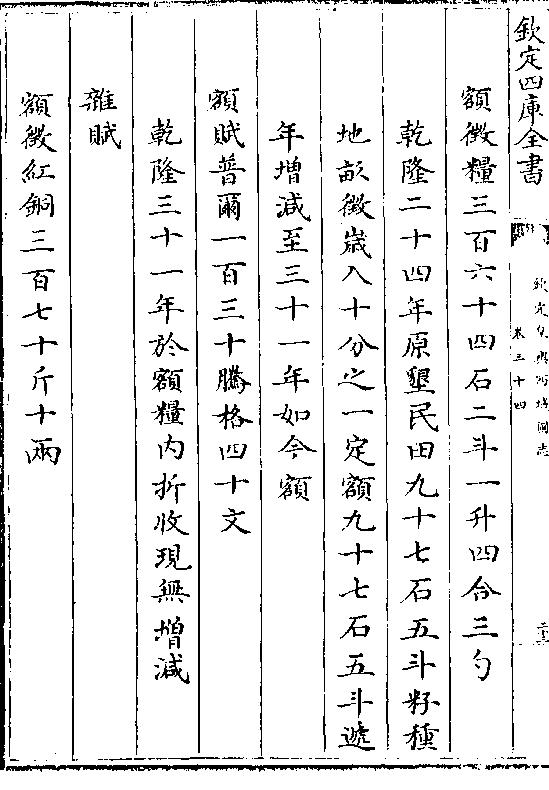 欽定四庫全書
欽定皇輿西域圖志
卷三十四
額徵糧三百六十四石二斗一升四合三勺
乾隆二十四年原墾民田九十七石五斗籽種
地畝徵歲入十分之一定額九十七石五斗遞
年增減至三十一年如今額
額賦普爾一百三十騰格四十文
乾隆三十一年於額糧內折收現無增減
雜賦
額徵紅銅三百七十斤十兩